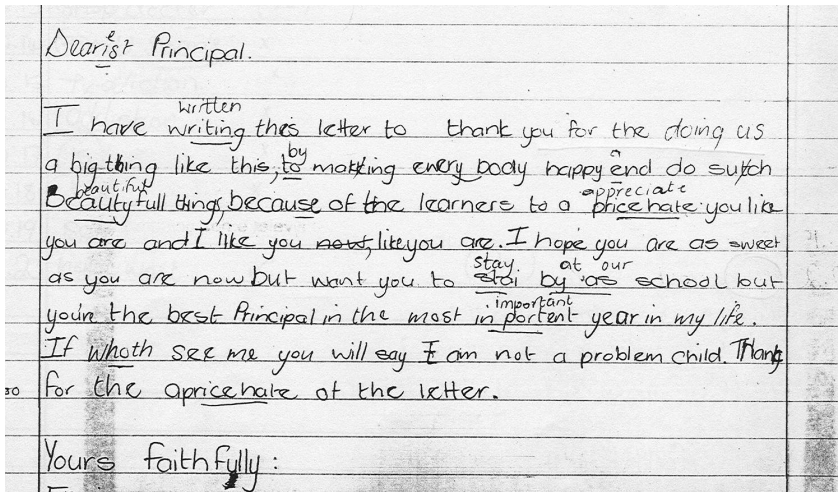 e
Dearist Principal.
written
I have writing this letter to thank you for the doing us
by a
a big thing like this, to making every body happy end do sutch
beautiful appreciate
Beautyfull things, because of the learners to a price hate you like
you are and I like you now, like you are. I hope you are as sweet
stay at our
as you are now but want you to stai by as school but
important
you'r the best Principal in the most in portent year in my life.
If whoth see me you will say I am not a problem child. Thank
30 for the apricehate of the letter.
Yours faithfully: